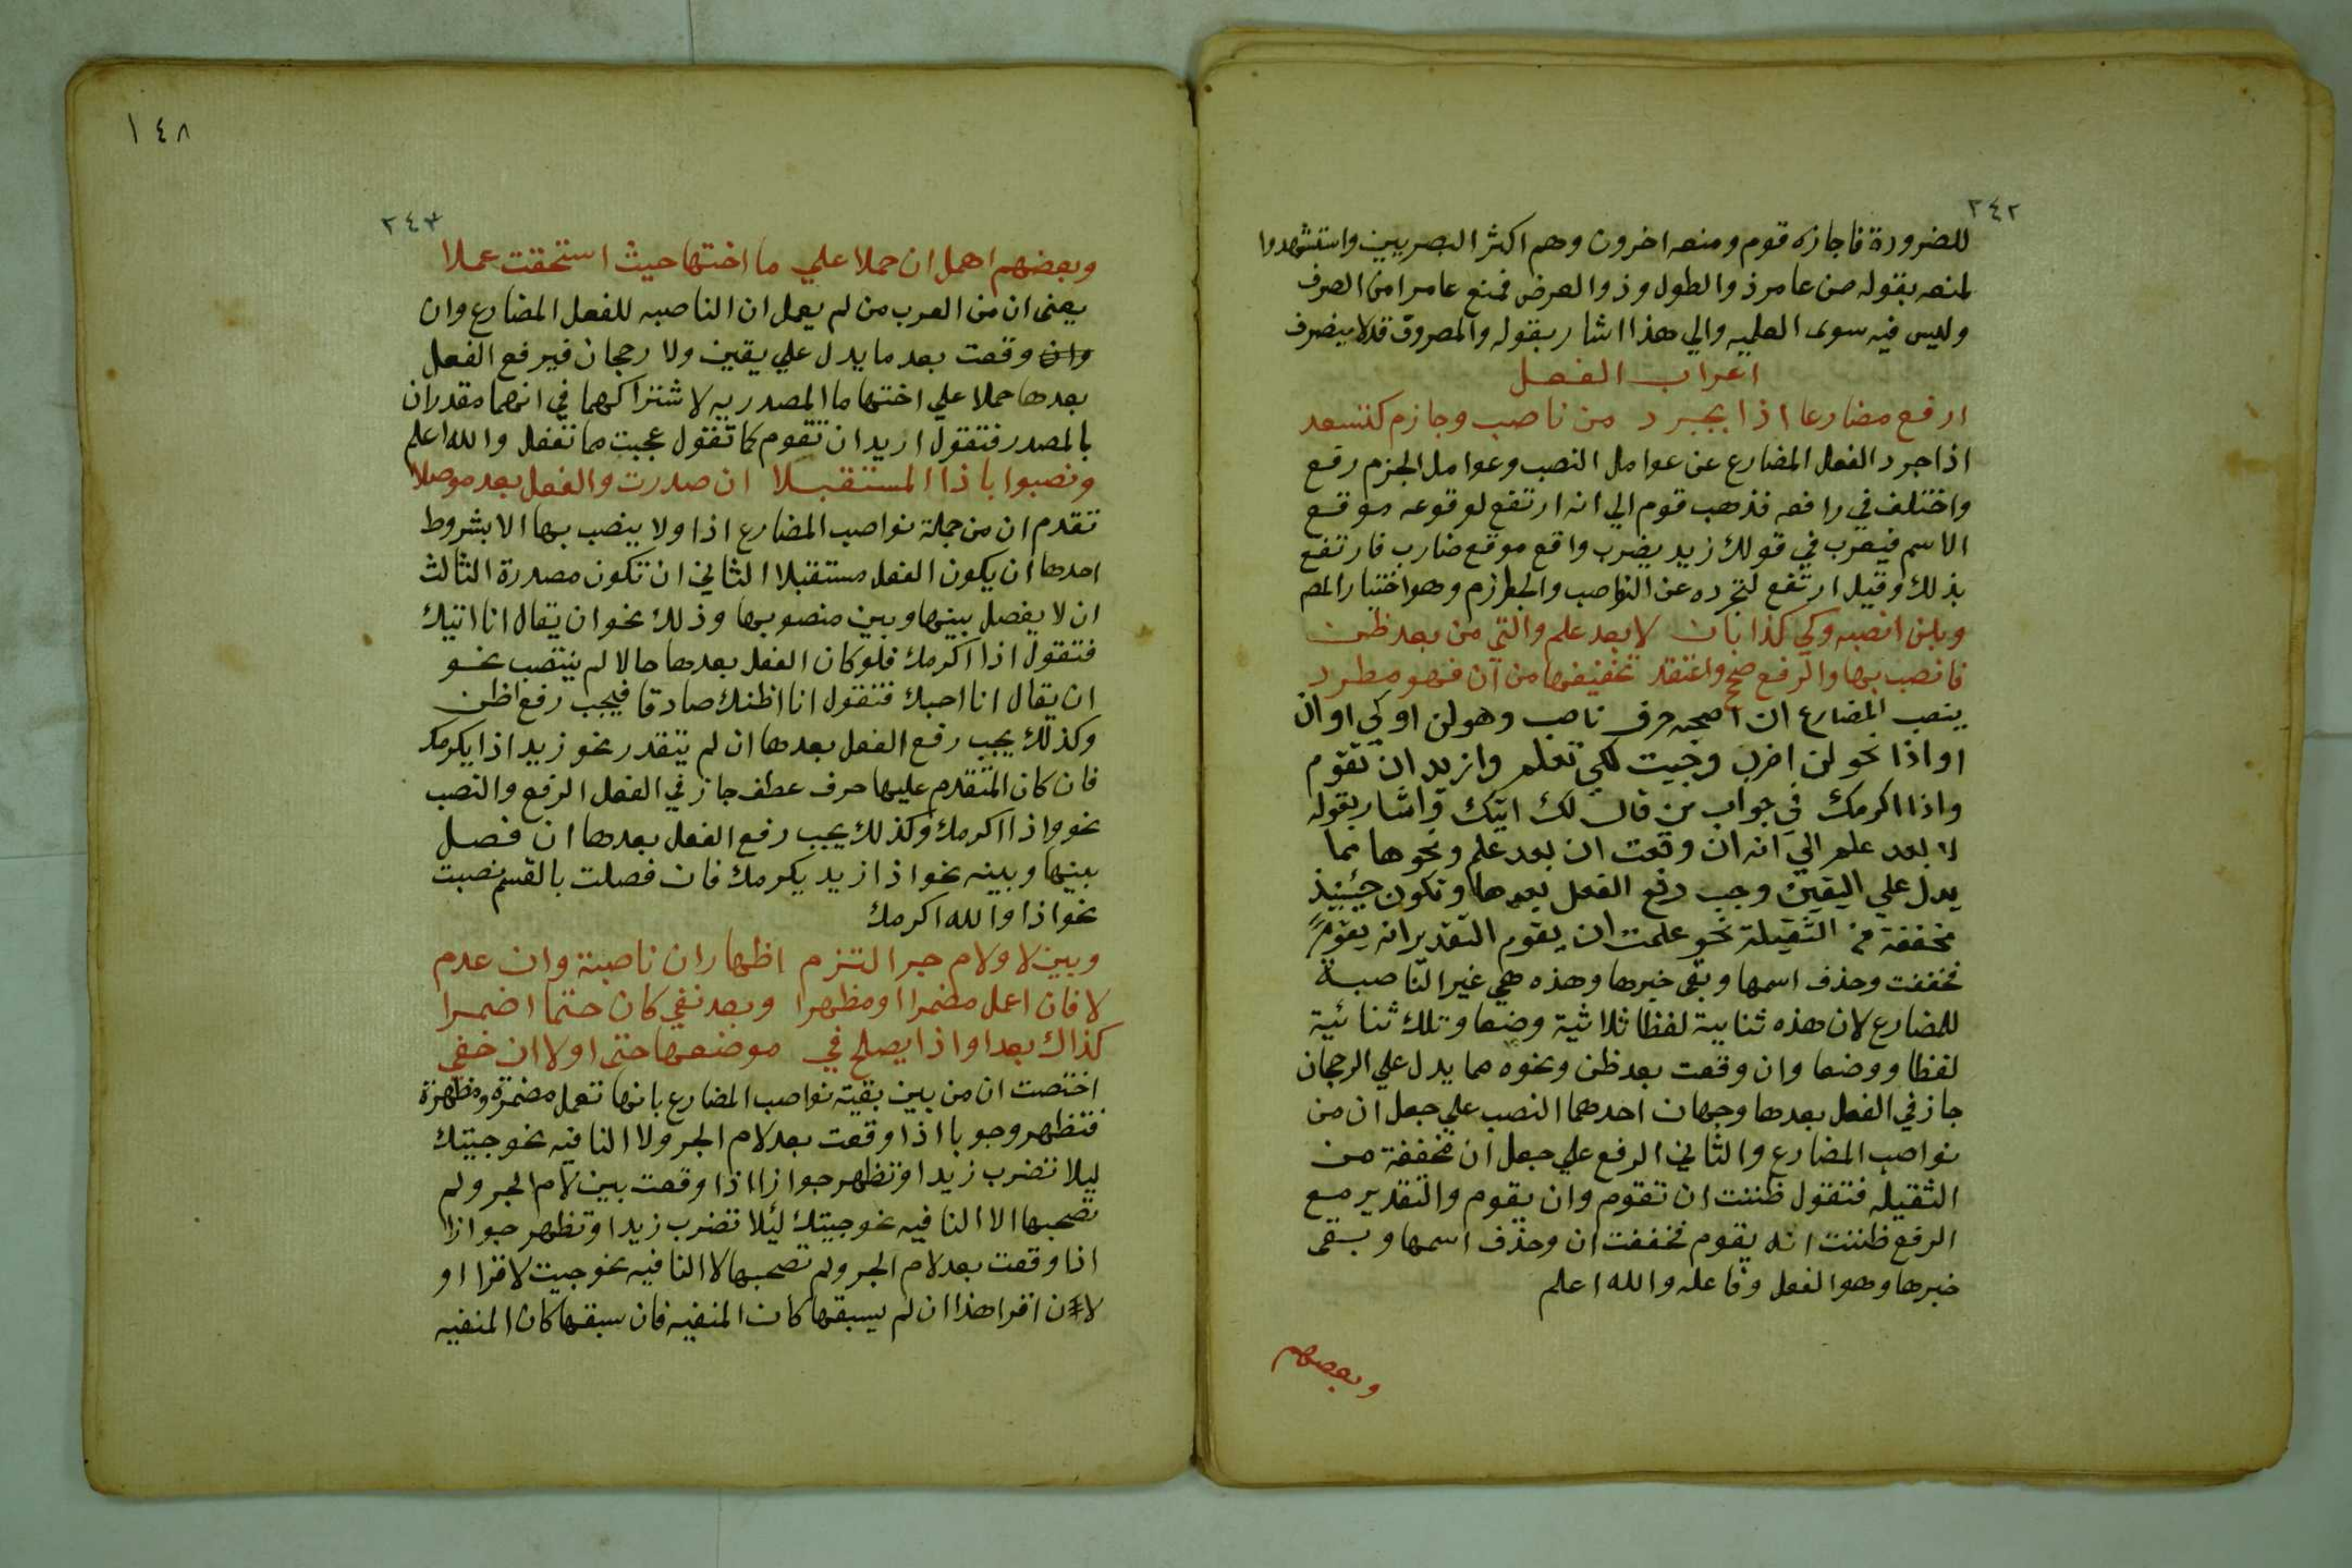 ٢٤٢
للضرورة فاجازه قوم ومنعه اخرون وهم اكثر البصريين واستشهدوا
لمنعه بقوله من عامر ذو الطول وذو العرض فمنع عامرا من الصرف
وليس فيه سوى العلميه والي هذا اشار بقوله والمصروف قد لا ينصرف
اعراب الفعل
ارفع مضارعا اذا يجرد من ناصب وجازم كتسعد
اذا جرد الفعل المضارع عن عوامل النصب وعوامل الجزم رفع
واختلف في رافعه فذهب قوم الي انه ارتفع لوقوعه موقع
الاسم فيضرب في قولك زيد يضرب واقع موقع ضارب فارتفع
بذلك وقيل ارتفع لتجرده عن النواصب والجوازم وهو اختيار المص
وبلن انصبه وكي كذا بان لا بعد علم والتي من بعد ظن
فانصب بها والرفع صحح واعتقد تخفيفها من ان فهو مطرد
ينصب المضارع ان اصحبه حرف ناصب وهو لن او كي او ان
او اذا نحو لن اضرب وجيت لكي تعلم واريد ان تقوم
واذا اكرمك في جواب من قال لك اتيك واشار بقوله
لا بعد علم الي انه ان وقعت ان بعد علم ونحوها مما
يدل علي اليقين وجب رفع الفعل بعدها وتكون حينيذ
مخففة من الثقيلة نحو علمت ان يقوم التقدير انه يقوم
فخففت وحذف اسمها وبقى خبرها وهذه هي غير الناصبة
للمضارع لان هذه ثنايية لفظا ثلاثية وضعا وتلك ثنائية
لفظا ووضعا وان وقعت بعد ظن ونحوه مما يدل علي الرجحان
جاز في الفعل بعدها وجهان احدهما النصب علي جعل ان من
نواصب المضارع والثاني الرفع علي جعل ان مخففة من
الثقيله فتقول ظننت ان تقوم وان يقوم والتقدير مع
الرفع ظننت انه يقوم فخففت ان وحذف اسمها وبقى
خبرها وهو الفعل وفاعله والله اعلم
وبعضهم
١٤٨
٢٤٣
وبعضهم اهمل ان حملا علي ما اختها حيث استحقت عملا
يعني ان من العرب من لم يعمل ان الناصبه للفعل المضارع وان
وان وقعت بعد ما يدل علي يقين ولا رجحان فيرفع الفعل
بعدها حملا علي اختها ما المصدريه لاشتراكهما في انهما مقدران
بالمصدر فتقول اريد ان تقوم كما تقول عجبت مما تفعل والله اعلم
ونصبوا باذا المستقبلا ان صدرت والفعل بعد موصلا
تقدم ان من جملة نواصب المضارع اذا ولا ينصب بها الا بشروط
احدها ان يكون الفعل مستقبلا الثاني ان تكون مصدرة الثالث
ان لا يفصل بينها وبين منصوبها وذلك نحو ان يقال انا اتيك
فتقول اذا اكرمك فلو كان الفعل بعدها حالا لم ينتصب نحو
ان يقال انا احبك فتقول انا اظنك صادقا فيجب رفع اظن
وكذلك يجب رفع الفعل بعدها ان لم يتقدر نحو زيد اذا يكرمك
فان كان المتقدم عليها حرف عطف جاز في الفعل الرفع والنصب
نحو واذا اكرمك وكذلك يجب رفع الفعل بعدها ان فصل
بينها وبينه نحو اذا زيد يكرمك فان فصلت بالقسم نصبت
نحو اذا والله اكرمك
وبين لا ولام جر التزم اظهار ان ناصبة وان عدم
لا فان اعمل مضمرا او مظهرا وبعد نفي كان حتما اضمرا
كذاك بعد او اذا يصلح في موضعها حتى او لا ان خفي
اختصت ان من بين بقية نواصب المضارع بانها تعمل مضمرة ومظهرة
فتظهر وجوبا اذا وقعت بعد لام الجر ولا النافيه نحو جيتك
ليلا تضرب زيدا وتظهر جوازا اذا وقعت بين لام الجر ولم
تصحبها الا النافيه نحو جيتك لئلا تضرب زيدا وتظهر جوازا
اذا وقعت بعد لام الجر ولم تصحبها لا النافيه نحو جيت لاقرا او
لان اقرا هذا ان لم يسبقها كان المنفيه فان سبقها كان المنفيه